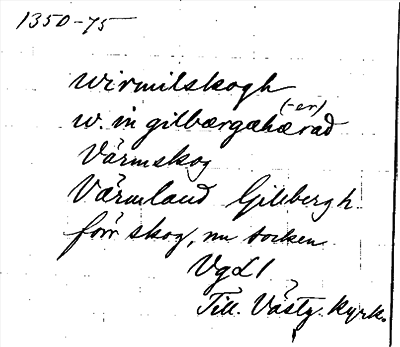 1350-75
wirmilskogh
w. in gilbærgahærad (-er)
Värmskog
Värmland Gillbergh.
förr skog, nu socken
VgL 1
Till. Västg. kyrk.